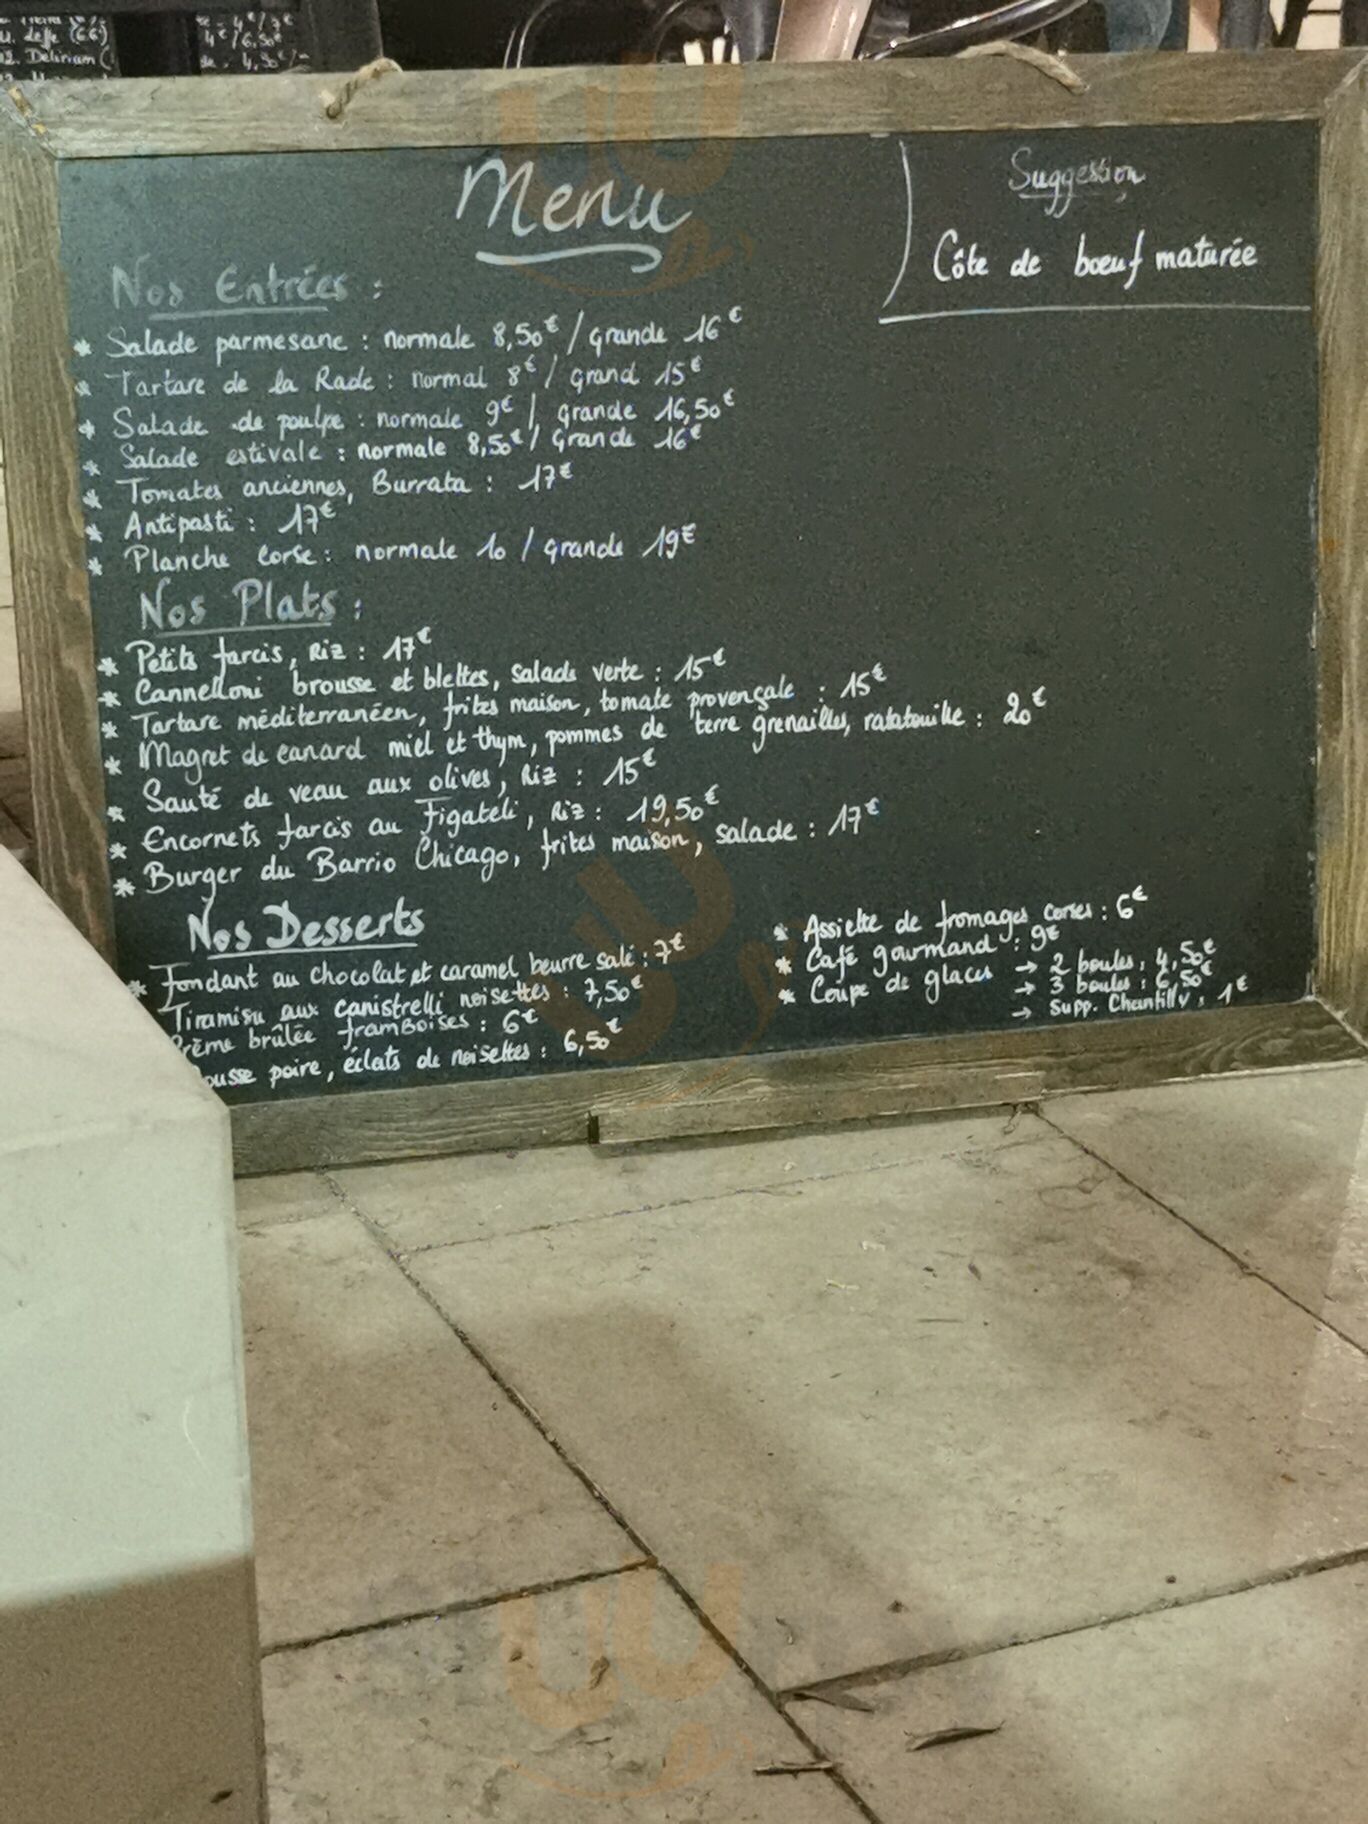 (66)
12. Delirium (
4€/7€
4€/6,50€
4,50€/-
Menu
Suggestion
Côte de bœuf maturée
Nos Entrées :
* Salade parmesane : normale 8,50€ / grande 16€
* Tartare de la Rade : normal 8€ / grand 15€
* Salade de poulpe : normale 9€ / grande 16,50€
* Salade estivale : normale 8,50€ / Grande 16€
* Tomates anciennes, Burrata : 17€
* Antipasti : 17€
* Planche corse : normale 10 / grande 19€
Nos Plats :
* Petits farcis, Riz : 17€
* Cannelloni brousse et blettes, salade verte : 15€
* Tartare méditerranéen, frites maison, tomate provençale : 15€
* Magret de canard miel et thym, pommes de terre grenailles, ratatouille : 20€
* Sauté de veau aux olives, Riz : 15€
* Encornets farcis au Figatelli, Riz : 19,50€
* Burger du Barrio Chicago, frites maison, salade : 17€
Nos Desserts
* Fondant au chocolat et caramel beurre salé : 7€
Tiramisu aux canistrelli noisettes : 7,50€
Crème brûlée framboises : 6€
ousse poire, éclats de noisettes : 6,50€
* Assiette de fromages corses : 6€
* Café gourmand : 9€
* Coupe de glaces → 2 boules : 4,50€
→ 3 boules : 6,50€
→ Supp. Chantilly : 1€